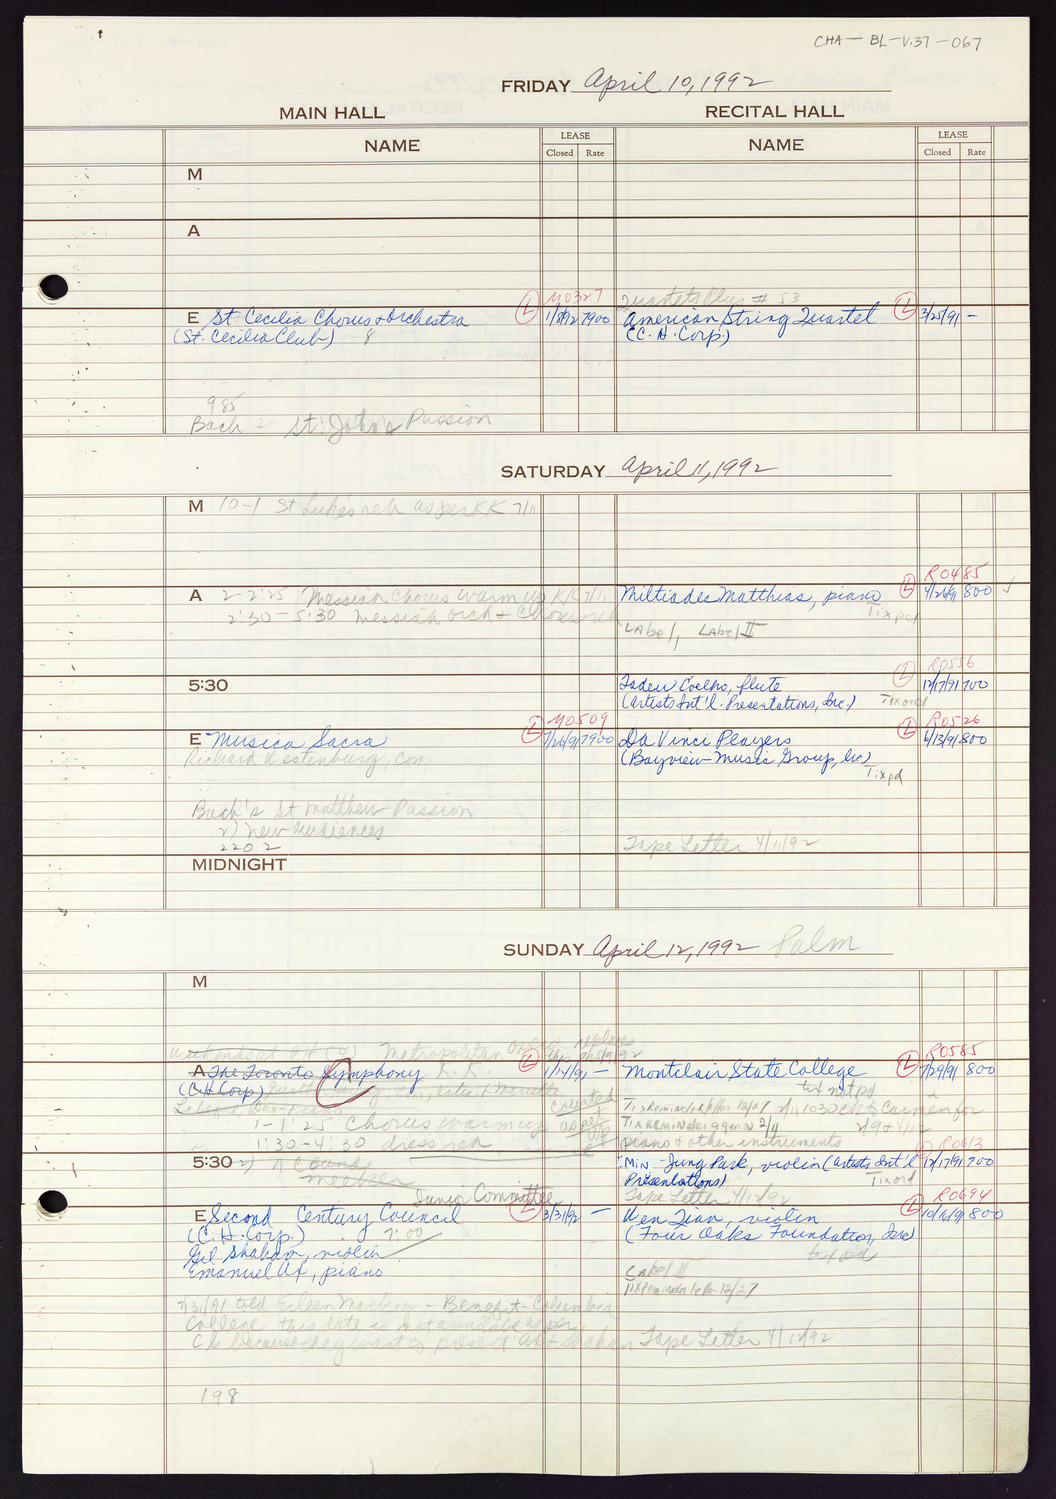 CHA-BL-V.37-067
FRIDAY April 10, 1992
MAIN HALL RECITAL HALL
NAME LEASE NAME LEASE
Closed Rate Closed Rate
M
A
M0327 Quartets Plus # 53
E St Cecilia Chorus & Orchestra L 1/8/92 7900 American String Quartet L 3/25/91 -
(St. Cecilia Club) 8 (C.H. Corp.)
985
Bach St. John's Passion
SATURDAY April 11, 1992
M 10-1 St Luke's reh as per KK 7/11
R0485
A 2-2:25 Messiah Chorus warm up KK 7/11 Miltiades Matthias, piano L 4/26/91 800
2:30-5:30 Messiah orch + Chorus reh Tix pd
Label, Label II
R0556
5:30 Tadeu Coelho, flute L 12/17/91 700
(Artists Int'l. Presentations, Inc.) Tix ord
M0509 R0526
E Musica Sacra L 7/26/91 7900 Da Vinci Players L 6/13/91 800
Richard Westenburg, con (Bayview Music Group, Inc)
Tix pd
Bach's St Matthew Passion
2) New Audiences
2202 Tape Letter 4/11/92
MIDNIGHT
SUNDAY April 12, 1992 Palm
M
Weekends at CH Metropolitan replaces
R0585
A The Toronto Symphony K.K. L 1/14/91 - Montclair State College L 7/29/91 800
(CH Corp) tix not pd
Labeque, duo-piano counted Tix Reminder letter
1-1:25 Chorus warm up as Tix Reminder again 2/11
1:30-4:30 dress reh piano & other instruments
R0613
5:30 Min-Jung Park, violin (Artists Int'l 12/17/91 700
Presentations) Tix ord
Junior Committee Tape Letter 4/12/92
R0694
E Second Century Council L 3/31/92 - Wen Qian, violin L 10/16/91 800
(C.H. Corp.) 7:00 (Four Oaks Foundation, Inc)
Gil Shaham, violin tix pd
Emanuel Ax, piano Label II
Tix Reminder letter 12/27
7/31/91 told Eileen Mackay - Benefit - Columbia
College this date is not available as per
CH because they want to present Ax & Shaham Tape Letter 4/12/92
198